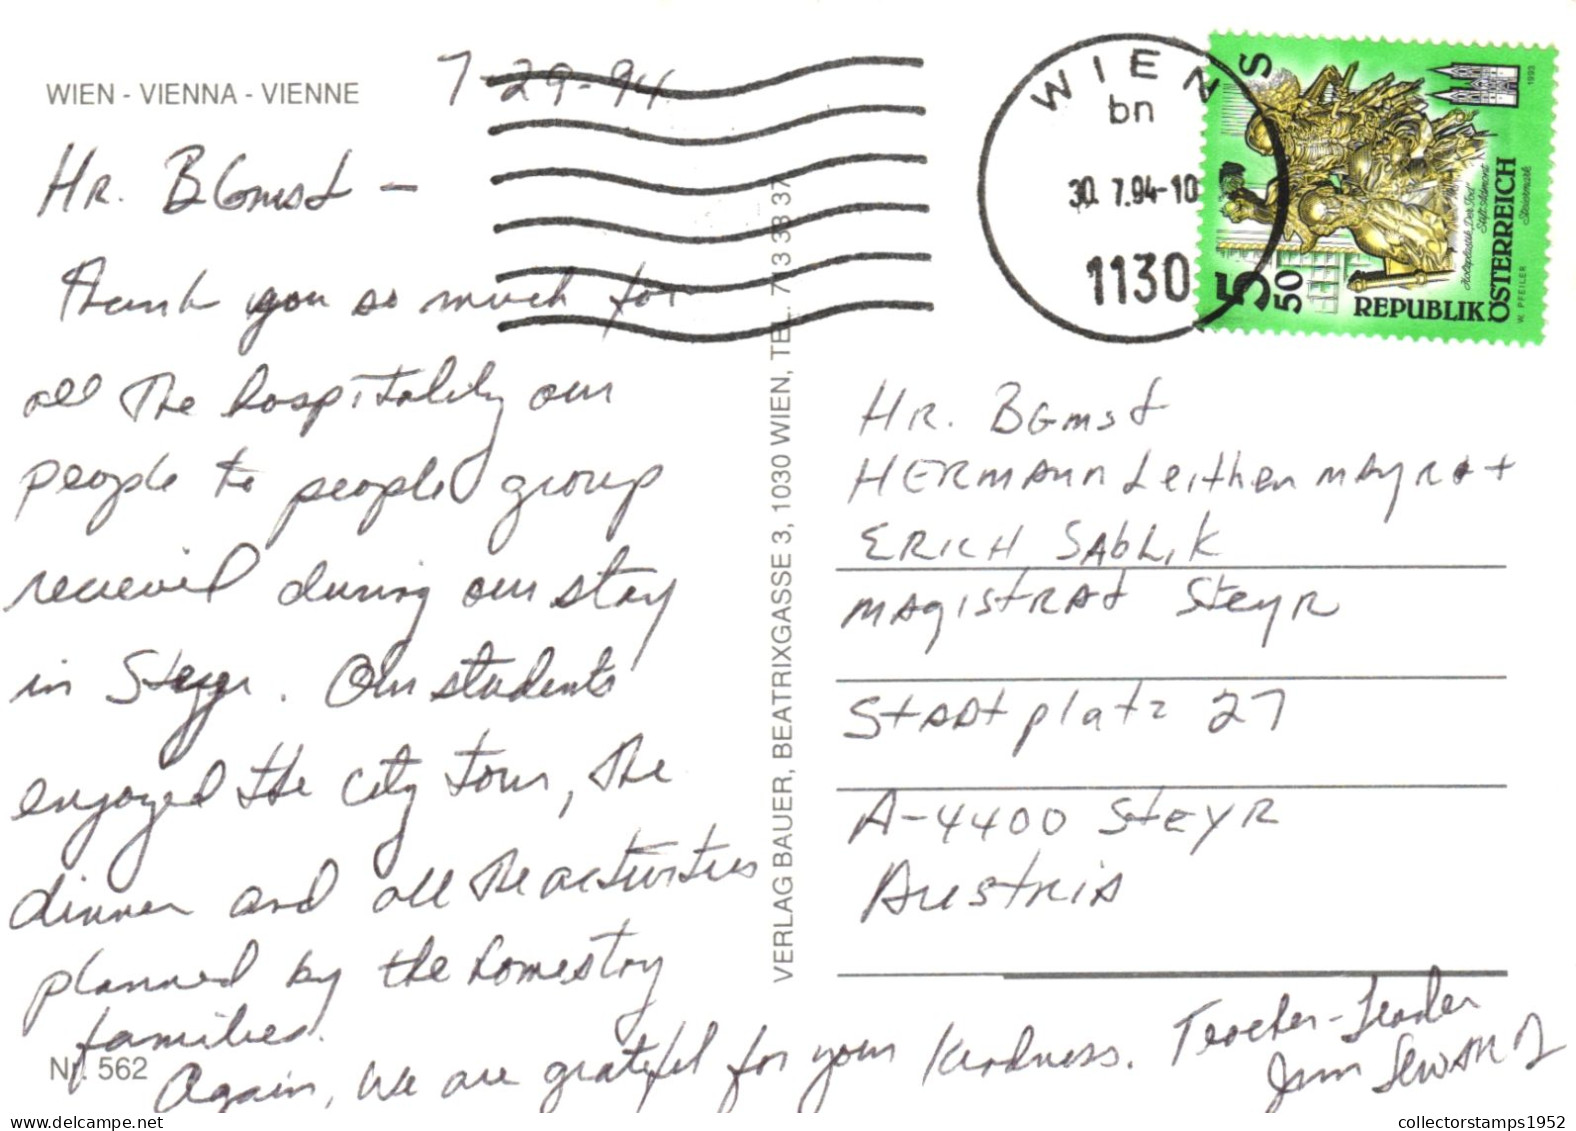 WIEN - VIENNA - VIENNE
7-29-94
HR. BGmst -
Thank you so much for
all the hospitality our
people to people group
received during our stay
in Steyr. Our students
enjoyed the city tour, the
dinner and all the activities
planned by the homestay
families.
Again, we are grateful for your kindness. Teacher-Leader
Jim
Nr. 562
VERLAG BAUER, BEATRIXGASSE 3, 1030 WIEN, TEL. 713 38 37
WIEN
bn
30. 7.94-10
1130
S 5 50
REPUBLIK ÖSTERREICH
Stift Admont
Steiermark
W. PFEILER
1993
HR. BGmst
HERMANN Leithenmayr +
ERICH SAbLik
MAgistRAt SteyR
StADtplatz 27
A-4400 SteYR
AustriA
collectorstamps1952